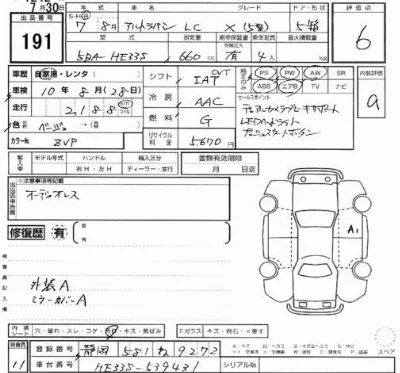 7月30日
出品番号
191
S・H・R 年 月 車名 グレード ドア・形状
7 8 アルトラパン LC X (5型) 5 箱
型式 排気量 車検満期 乗車定員 最大積載量
5BA-HE33S 660 cc 有 4 人
評価点
6
車歴 自家用・レンタ( )
車検 10年 8月(28日)
走行 2,188
色 ベージュ →( )
カラーNo. ZVP
シフト IAT CVT
冷房 AAC
燃料 G
リサイクル料金 5,670 円
PS PW AW SR
ABS エアB TV ナビ
内装評価
a
セールスポイント
デュアルカメラブレーキサポート
LEDヘッドライト
プッシュスタートボタン
輸入車 モデル年式 ハンドル 輸入区分 書類有効期限
年 右H・左H ディーラー・並行 月 日迄
出品店申告欄
※注意事項等記載
オーディオレス
修復歴 有
A1
外装A
ミラーカバーA
内装 シート 穴・破れ・スレ・コゲ・汚れ・キズ・黄ばみ
Fガラス キズ・飛石・×要す
スペア
検査員
11
登録番号 静岡 581 ね 9272
車台番号 HE33S-539431
シリアルNo.